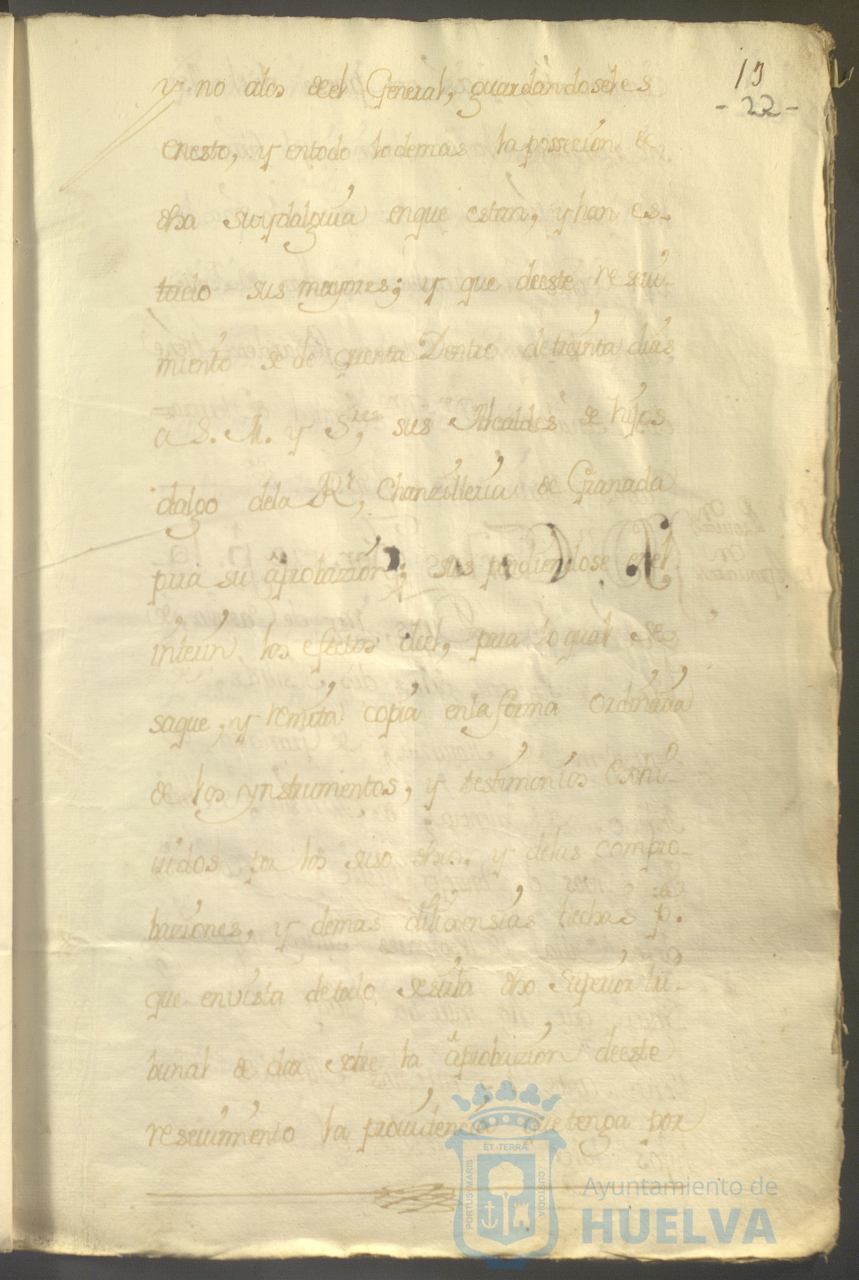 13
- 22 -
y no alos deel General, guardandoseles
enesto, y entodo lodemas la possecion de
dha suydalguia enque estan, y han es-
tado sus mayores; y que deeste reseui-
miento se de quenta Dentro detreinta dias
a S. M. y S.res sus Alcaldes de hijos
dalgo dela Rl, Chanzilleria de Granada
para su aprobazion; suspendiendose enel
interin los efectos del, para loqual se
saque, y remita copia enla forma Ordinaria
de los ynstrumentos, y testimonios Exhi-
uidos por los suso dhos, y delas compro-
baziones, y demas dilixensias hechas p.a
que envista detodo, sesirba dho Superior tri-
bunal de dar sobre la aprobazion deeste
reseuimiento la prouidencia quetenga por
PORTUS MARIS
ET TERRÆ
CUSTODIA
Ayuntamiento de
HUELVA